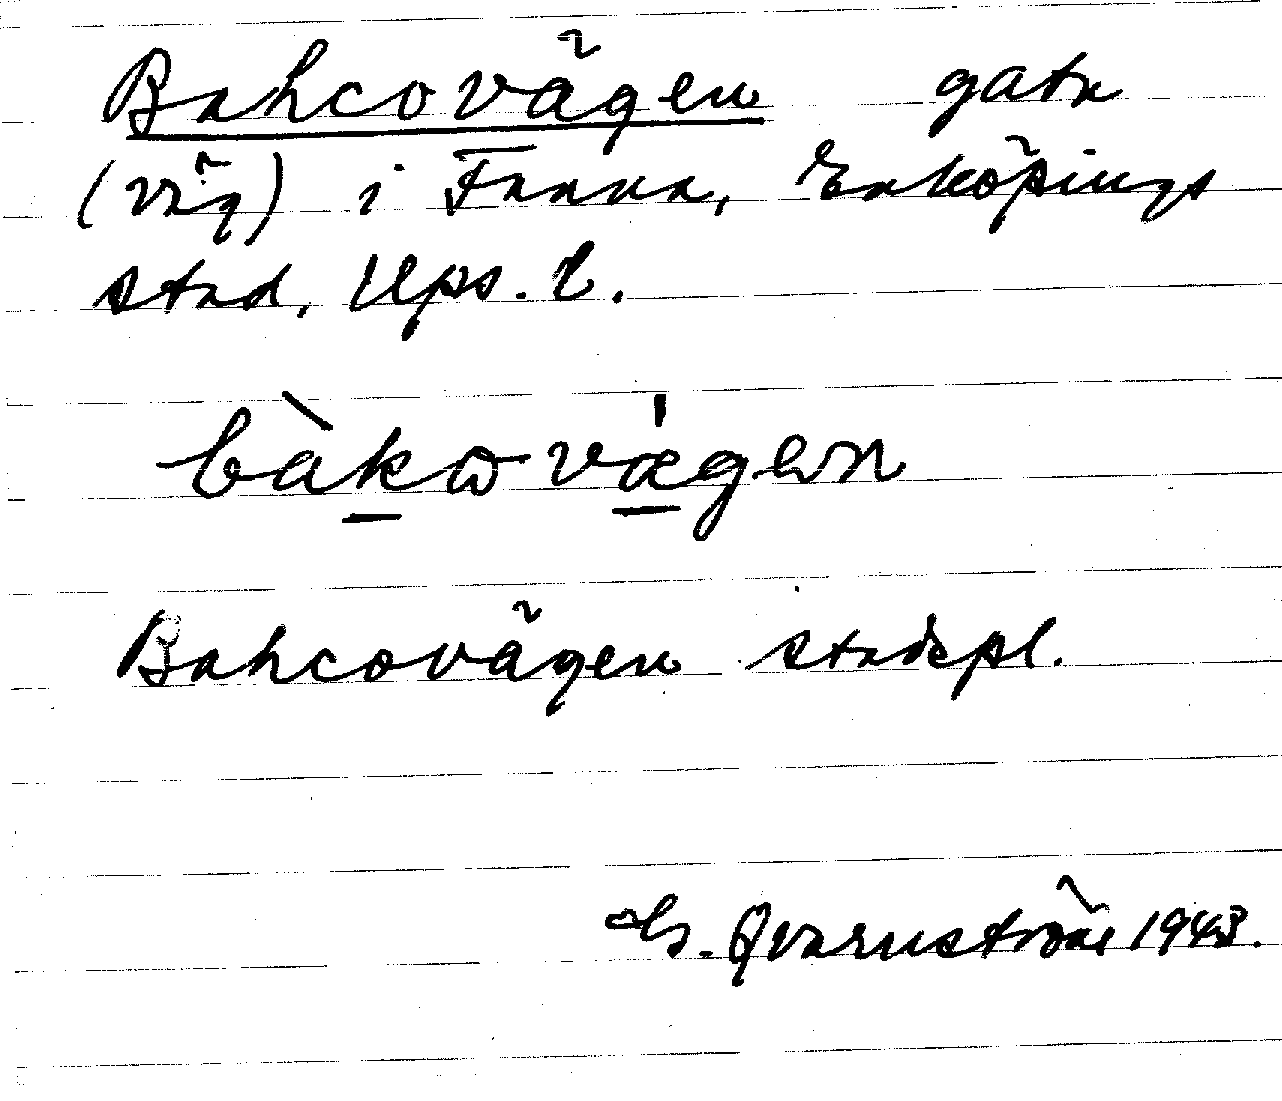 Bahcovägen gata
(väg) i Fanna, Enköpings
stad, Ups. l.
bàkωvǽgen
Bahcovägen stadspl.
G. Qvarnström 1943.